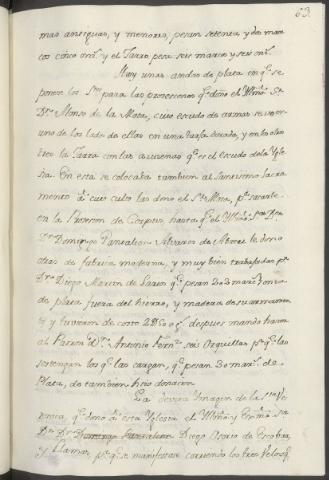 63.
mas antiguas, y menores, pesan setenta y dos mar
cos cinco on.s y el Jarro pesa seis marcos y seis on.s
Hay unas andas de plata en q.e se
ponen los S.tos para las processiones q.e dono el Illmo. Sr
Dr. Alonso de la Mota, cuio escudo de armas se ve en
uno de los lados de ellas en una tarja dorada, y en los otros
tres la Jarra con las azucenas q.e es el escudo de la Ygle
sia. En esta se colocaba tambien el Santissimo Sacra
mento á cuio culto las dono el Sr. Mota, p.a sacarle
en la Procession de Corpus, hasta q.e el Illmo. Sr. Dn.
Dr. Domingo Pantaleon Alvarez de Abreu le dono
otras de fabrica moderna, y muy bien trabajadas p.r
Dr. Diego Martin de Larios q.e pesan 203 marcos
de plata fuera del hierro, y madera de su armazon
es y tuvieron de costo despues mando hacer
al Patron D.n Antonio Fern.z seis Orquillas p.a q.e las
sostengan los q.e las cargan, q.e pesan 30 mar.s de
Plata, de tambien hizo donacion
La devota Ymagen de la S.ta Ve
ronica, q.e dono á esta Yglesia el Illmo. y Exmo. Sr.
Dn. Dr. Diego Osorio de Escobar,
y Llamas, p.a q.e se manifestara corriendo los tres Velos q.e